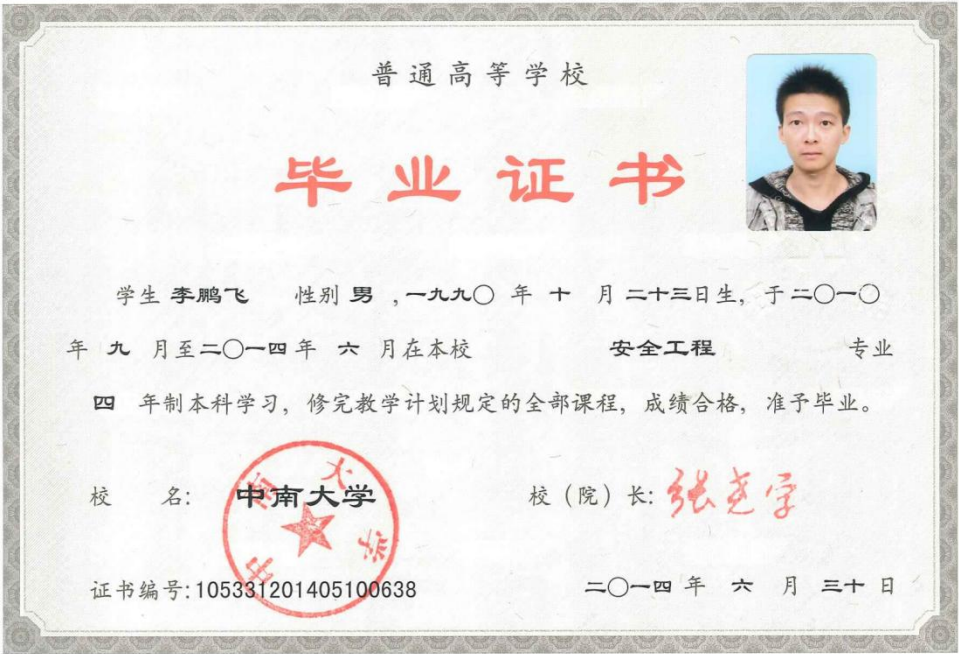 普通高等学校
毕业证书
学生 李鹏飞 性别 男 ,一九九〇 年 十 月 二十三日生, 于 二〇一〇
年 九 月至二〇一四年 六 月在本校 安全工程 专业
四 年制本科学习, 修完教学计划规定的全部课程, 成绩合格, 准予毕业。
校 名: 中南大学 校（院）长: 张尧学
中南大学
证书编号:105331201405100638 二〇一四 年 六 月 三十 日